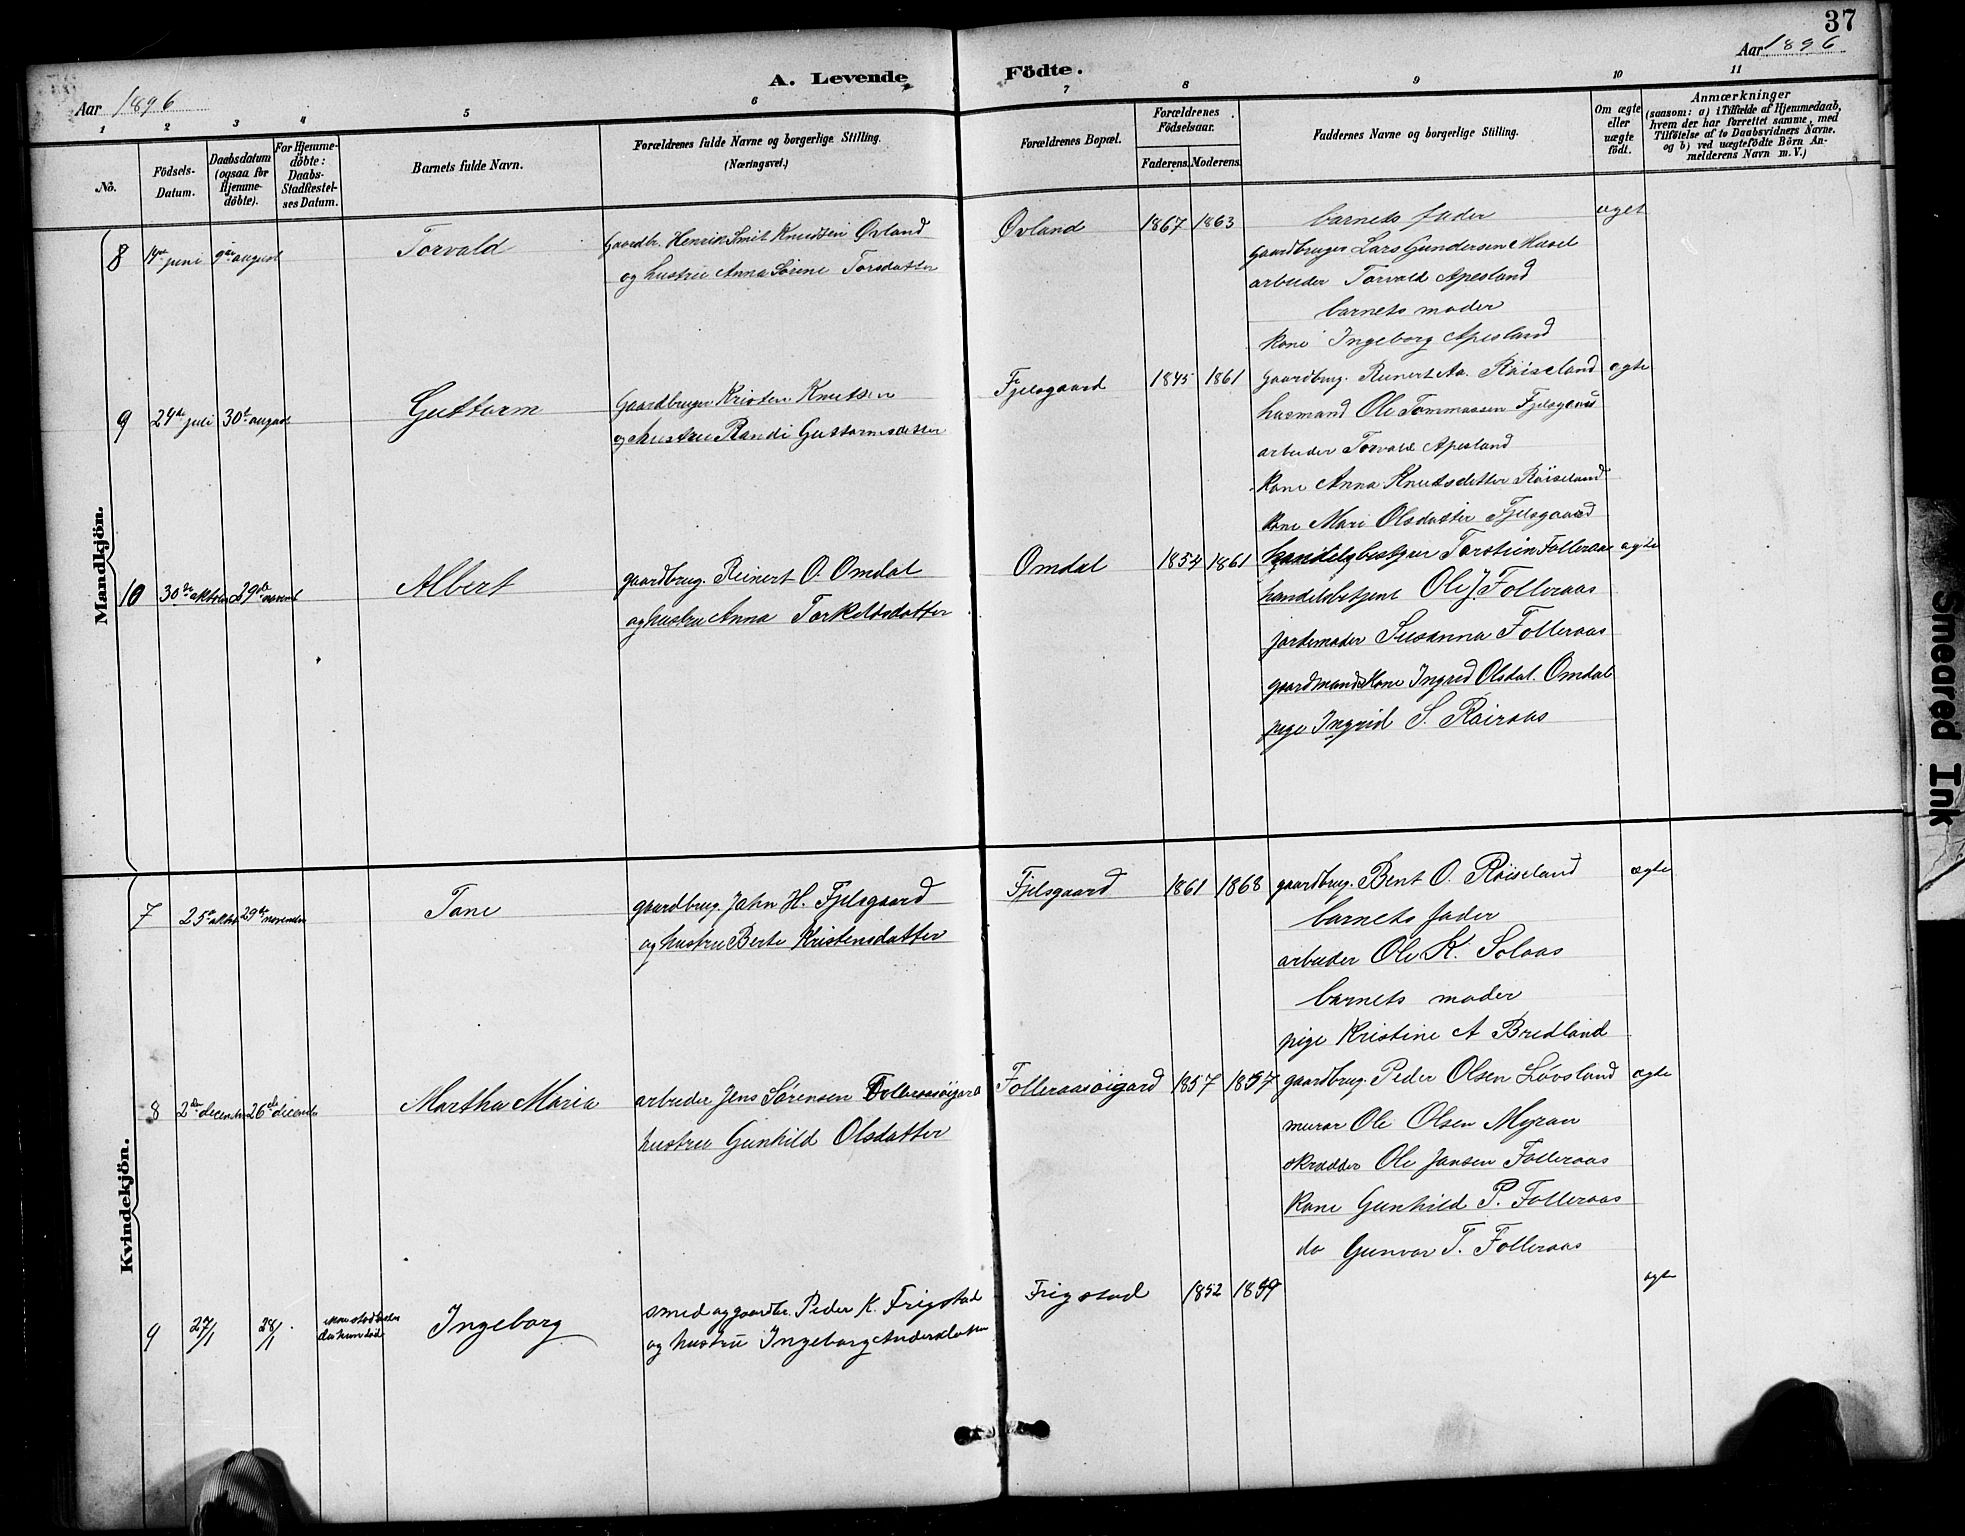 37
Aar 1896
A. Levende Födte.
Aar 1896
1 2 3 4 5 6 7 8 9 10 11
No.
Födsels-Datum.
Daabsdatum (ogsaa for Hjemme-döbte).
For Hjemme-döbte: Daabs-Stadfæstel-ses Datum.
Barnets fulde Navn.
Forældrenes fulde Navne og borgerlige Stilling.
(Næringsvei.)
Forældrenes Bopæl.
Forældrenes Födselsaar.
Faderens. Moderens.
Faddernes Navne og borgerlige Stilling.
Om ægte eller uægte födt.
Anmærkninger
(saasom: a) i Tilfælde af Hjemmedaab, hvem der har forrettet samme, med Tilföielse af to Daabsvidners Navne, og b) ved uægtefödte Börn An-melderens Navn m. V.)
Mandkjön.
8 juni august Torvald Gaardbr. Henrik Smit Knudsen Øvland Øvland 1867 1863 barnets fader
og hustru Anna Sørine Torsdatter
gaardbruger Lars Gundersen
arbeider Torvald Apesland
barnets moder
kone Ingeborg Apesland
9 24de juli 30t august Guttorm Gaardbruger Kristen Knutsen Fjelsgaard 1845 1861 Gaardbrug. Reinert Aa. Röiseland ægte
og hustru Randi Guttormsdatter
husmand Ole Tommassen Fjelsgaard
arbeider Torvald Apesland
kone Anna Knutsdatter Röiseland
kone Mari Olsdatter Fjelsgaard
10 30te 29de Albert gaardbrug. Reinert O. Omdal Omdal 1854 1861 handelsbestyrer Torstein Folleraas ægte
og hustru Anna Torkeldsdatter
handelsbetjent Ole J. Folleraas
jordemoder Susanna Folleraas
gaardmandskone Ingrid Olsdat. Omdal
pige Ingrid S. Röiraas
Kvindekjön.
7 25 29de november Tone gaardbrug. John H. Fjelsgaard Fjelsgaard 1861 1868 gaardbrug. Bent O. Röiseland ægte
og hustru Berte Kristensdatter
barnets fader
arbeider Ole K. Solaas
barnets moder
pige Kristine A Bredland
8 2de december 26de december Martha Maria arbeider Jens Sørensen Folleraasöigard Folleraasöigard 1857 1857 gaardbrug. Peder Olsen Lövsland ægte
hustru Gunhild Olsdatter
murar Ole Olsen Myran
skrædder Ole Jansen Folleraas
kone Gunhild P. Folleraas
do Gunvor T. Folleraas
9 27/1 28/1 Ingeborg smed og gaardbr. Peder K. Frigstad Frigstad 1852 1859 ægte
og hustru Ingeborg
Smeared Ink